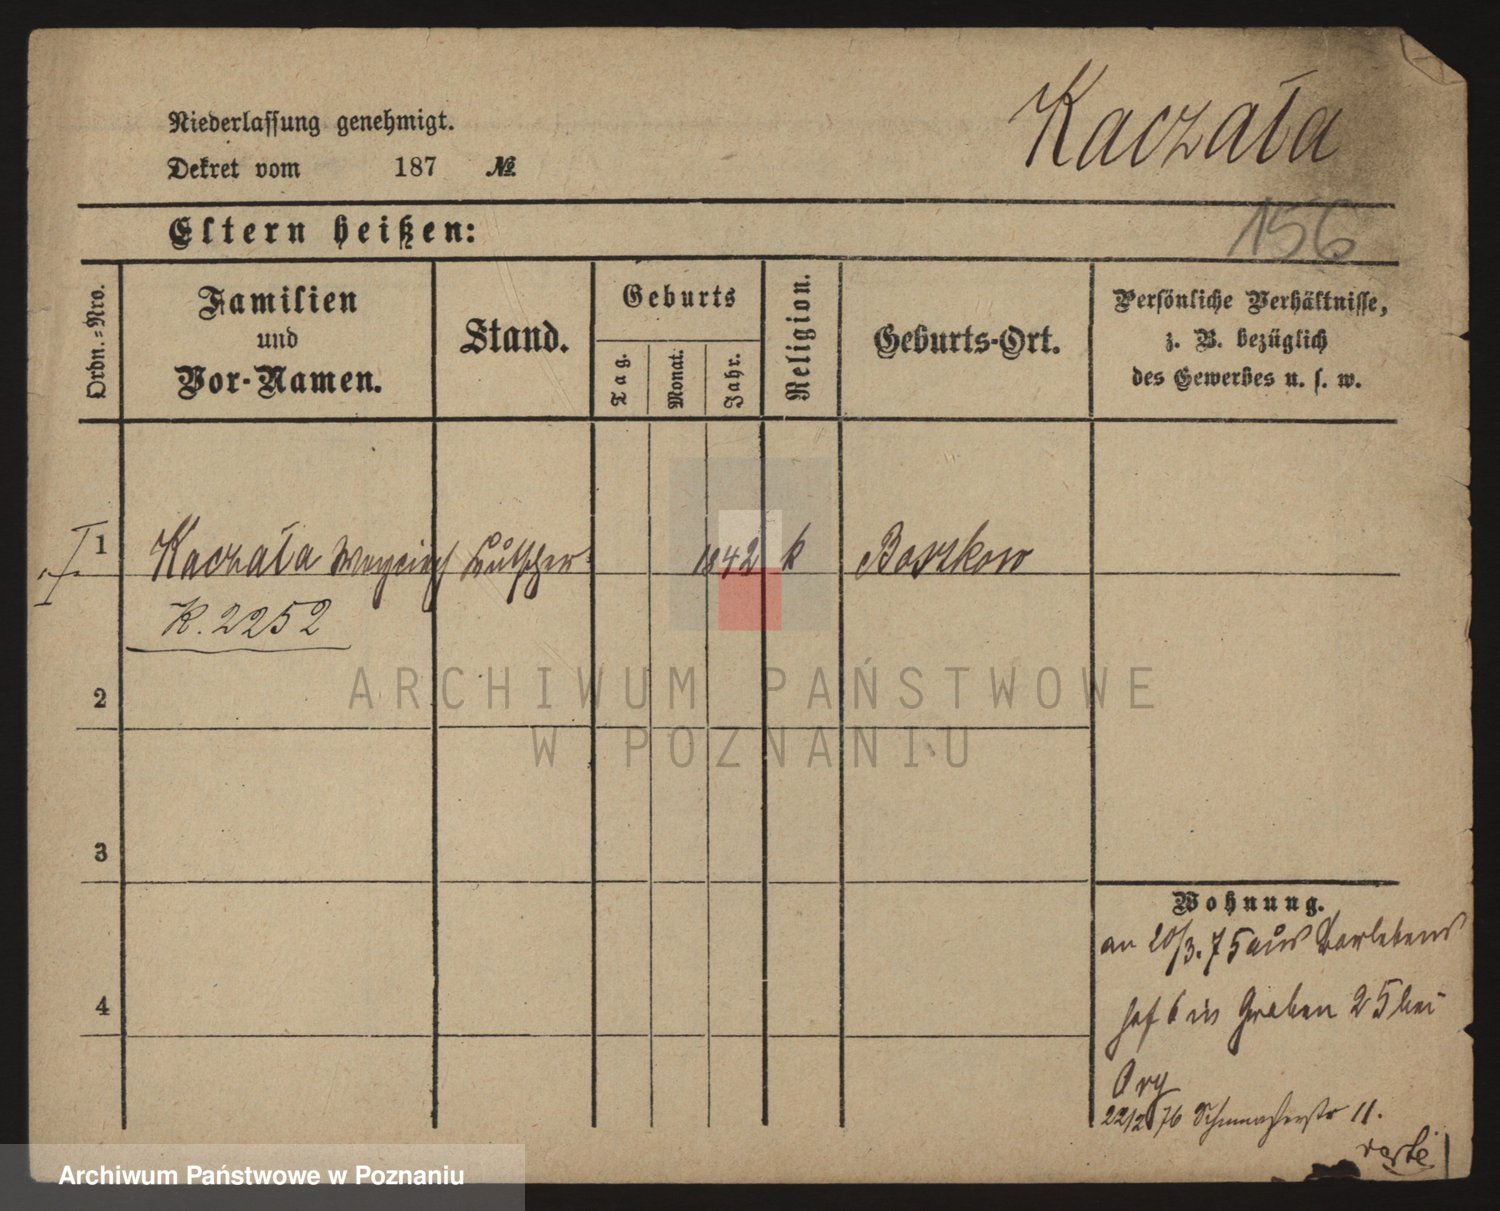 Niederlassung genehmigt.
Dekret vom 187 №
Kaczała
156
Eltern heißen:
Ordn.-Nro.
Familien
und
Vor-Namen.
Stand.
Geburts
Tag.
Monat.
Jahr.
Religion.
Geburts-Ort.
Persönliche Verhältnisse,
z. B. bezüglich
des Gewerbes u. s. w.
I 1 Kaczała Woyciech Kutscher 1842 k Borzkow
K. 2252
2
3
4
Wohnung.
an 20/3.75 aus Barlebens
hof 6 in Graben 25 bei
Org
22/2 76 Schumacherstr 11.
verte
ARCHIWUM PAŃSTWOWE
W POZNANIU
Archiwum Państwowe w Poznaniu